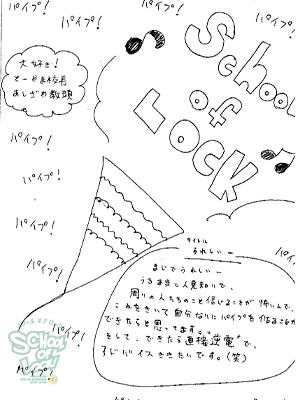 パイプ！
パイプ！
パイプ！
School
of
LOCK
大好き！
とーやま校長
あしざわ教頭
パイプ！
パイプ！
パイプ！
パイプ！
パイプ！
パイプ！
パイプ！
パイプ！
タイトル
うれしぃー
まじでうれしぃー
うち本当に人見知りで、
周りの人たちのことを信じることが怖いんで、
これをきいて自分なりにパイプを作ること
できたらと思ってます。
そして、できたら直接逆電で
アドバイスききたいです。(笑)
SCHOOL
OF
LOCK!
パイプ！
パイプ！
パイプ！